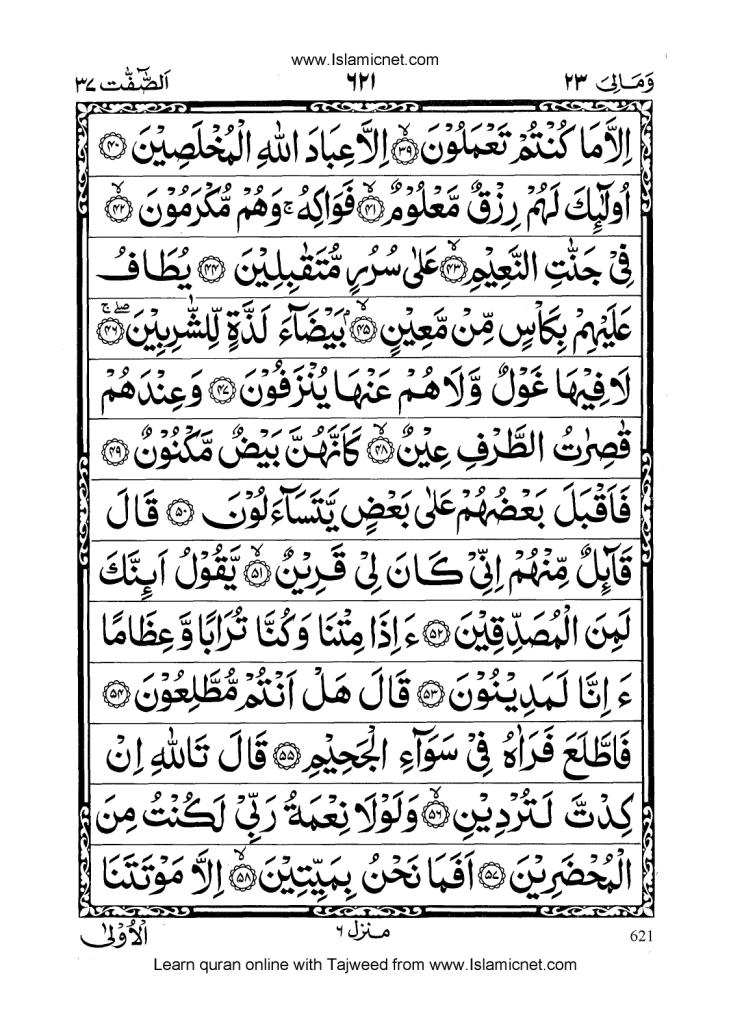 www.Islamicnet.com
وَمَالِیَ ٢٣ ٦٢١ اَلصّٰٓفّٰت ٣٧
اِلَّا مَا كُنْتُمْ تَعْمَلُوْنَ ۙ﴿۳۹﴾ اِلَّا عِبَادَ اللّٰهِ الْمُخْلَصِيْنَ ﴿۴۰﴾
اُولٰٓئِكَ لَهُمْ رِزْقٌ مَّعْلُوْمٌ ۙ﴿۴۱﴾ فَوَاكِهُ ۚ وَهُمْ مُّكْرَمُوْنَ ۙ﴿۴۲﴾
فِيْ جَنّٰتِ النَّعِيْمِ ۙ﴿۴۳﴾ عَلٰى سُرُرٍ مُّتَقٰبِلِيْنَ ﴿۴۴﴾ يُطَافُ
عَلَيْهِمْ بِكَاْسٍ مِّنْ مَّعِيْنٍۭ ۙ﴿۴۵﴾ بَيْضَآءَ لَذَّةٍ لِّلشّٰرِبِيْنَ ۖۚ﴿۴۶﴾
لَا فِيْهَا غَوْلٌ وَّلَا هُمْ عَنْهَا يُنْزَفُوْنَ ﴿۴۷﴾ وَعِنْدَهُمْ
قٰصِرٰتُ الطَّرْفِ عِيْنٌ ۙ﴿۴۸﴾ كَاَنَّهُنَّ بَيْضٌ مَّكْنُوْنٌ ﴿۴۹﴾
فَاَقْبَلَ بَعْضُهُمْ عَلٰى بَعْضٍ يَّتَسَآءَلُوْنَ ﴿۵۰﴾ قَالَ
قَآئِلٌ مِّنْهُمْ اِنِّيْ كَانَ لِيْ قَرِيْنٌ ۙ﴿۵۱﴾ يَّقُوْلُ اَئِنَّكَ
لَمِنَ الْمُصَدِّقِيْنَ ﴿۵۲﴾ ءَاِذَا مِتْنَا وَكُنَّا تُرَابًا وَّعِظَامًا
ءَاِنَّا لَمَدِيْنُوْنَ ﴿۵۳﴾ قَالَ هَلْ اَنْتُمْ مُّطَّلِعُوْنَ ﴿۵۴﴾
فَاطَّلَعَ فَرَاٰهُ فِيْ سَوَآءِ الْجَحِيْمِ ﴿۵۵﴾ قَالَ تَاللّٰهِ اِنْ
كِدْتَّ لَتُرْدِيْنِ ۙ﴿۵۶﴾ وَلَوْلَا نِعْمَةُ رَبِّيْ لَكُنْتُ مِنَ
الْمُحْضَرِيْنَ ﴿۵۷﴾ اَفَمَا نَحْنُ بِمَيِّتِيْنَ ۙ﴿۵۸﴾ اِلَّا مَوْتَتَنَا
621 منزل ٦ الْاُوْلٰى
Learn quran online with Tajweed from www.Islamicnet.com